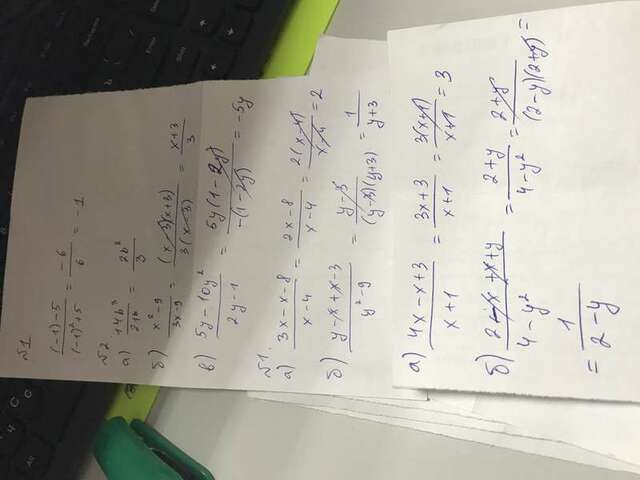 №1
((-1)-5)/((-1)²+5) = -6/6 = -1
№2
а) 14b³/21b = 2b²/3
б) (x²-9)/(3x-9) = ((x-3)(x+3))/(3(x-3)) = (x+3)/3
в) (5y-10y²)/(2y-1) = (5y(1-2y))/(-(1-2y)) = -5y
№1.
а) (3x-x-8)/(x-4) = (2x-8)/(x-4) = (2(x-4))/(x-4) = 2
б) (y-x+x-3)/(y²-9) = (y-3)/((y-3)(y+3)) = 1/(y+3)
а) (4x-x+3)/(x+1) = (3x+3)/(x+1) = (3(x+1))/(x+1) = 3
б) (2-x+x+y)/(4-y²) = (2+y)/(4-y²) = (2+y)/((2-y)(2+y)) =
= 1/(2-y)